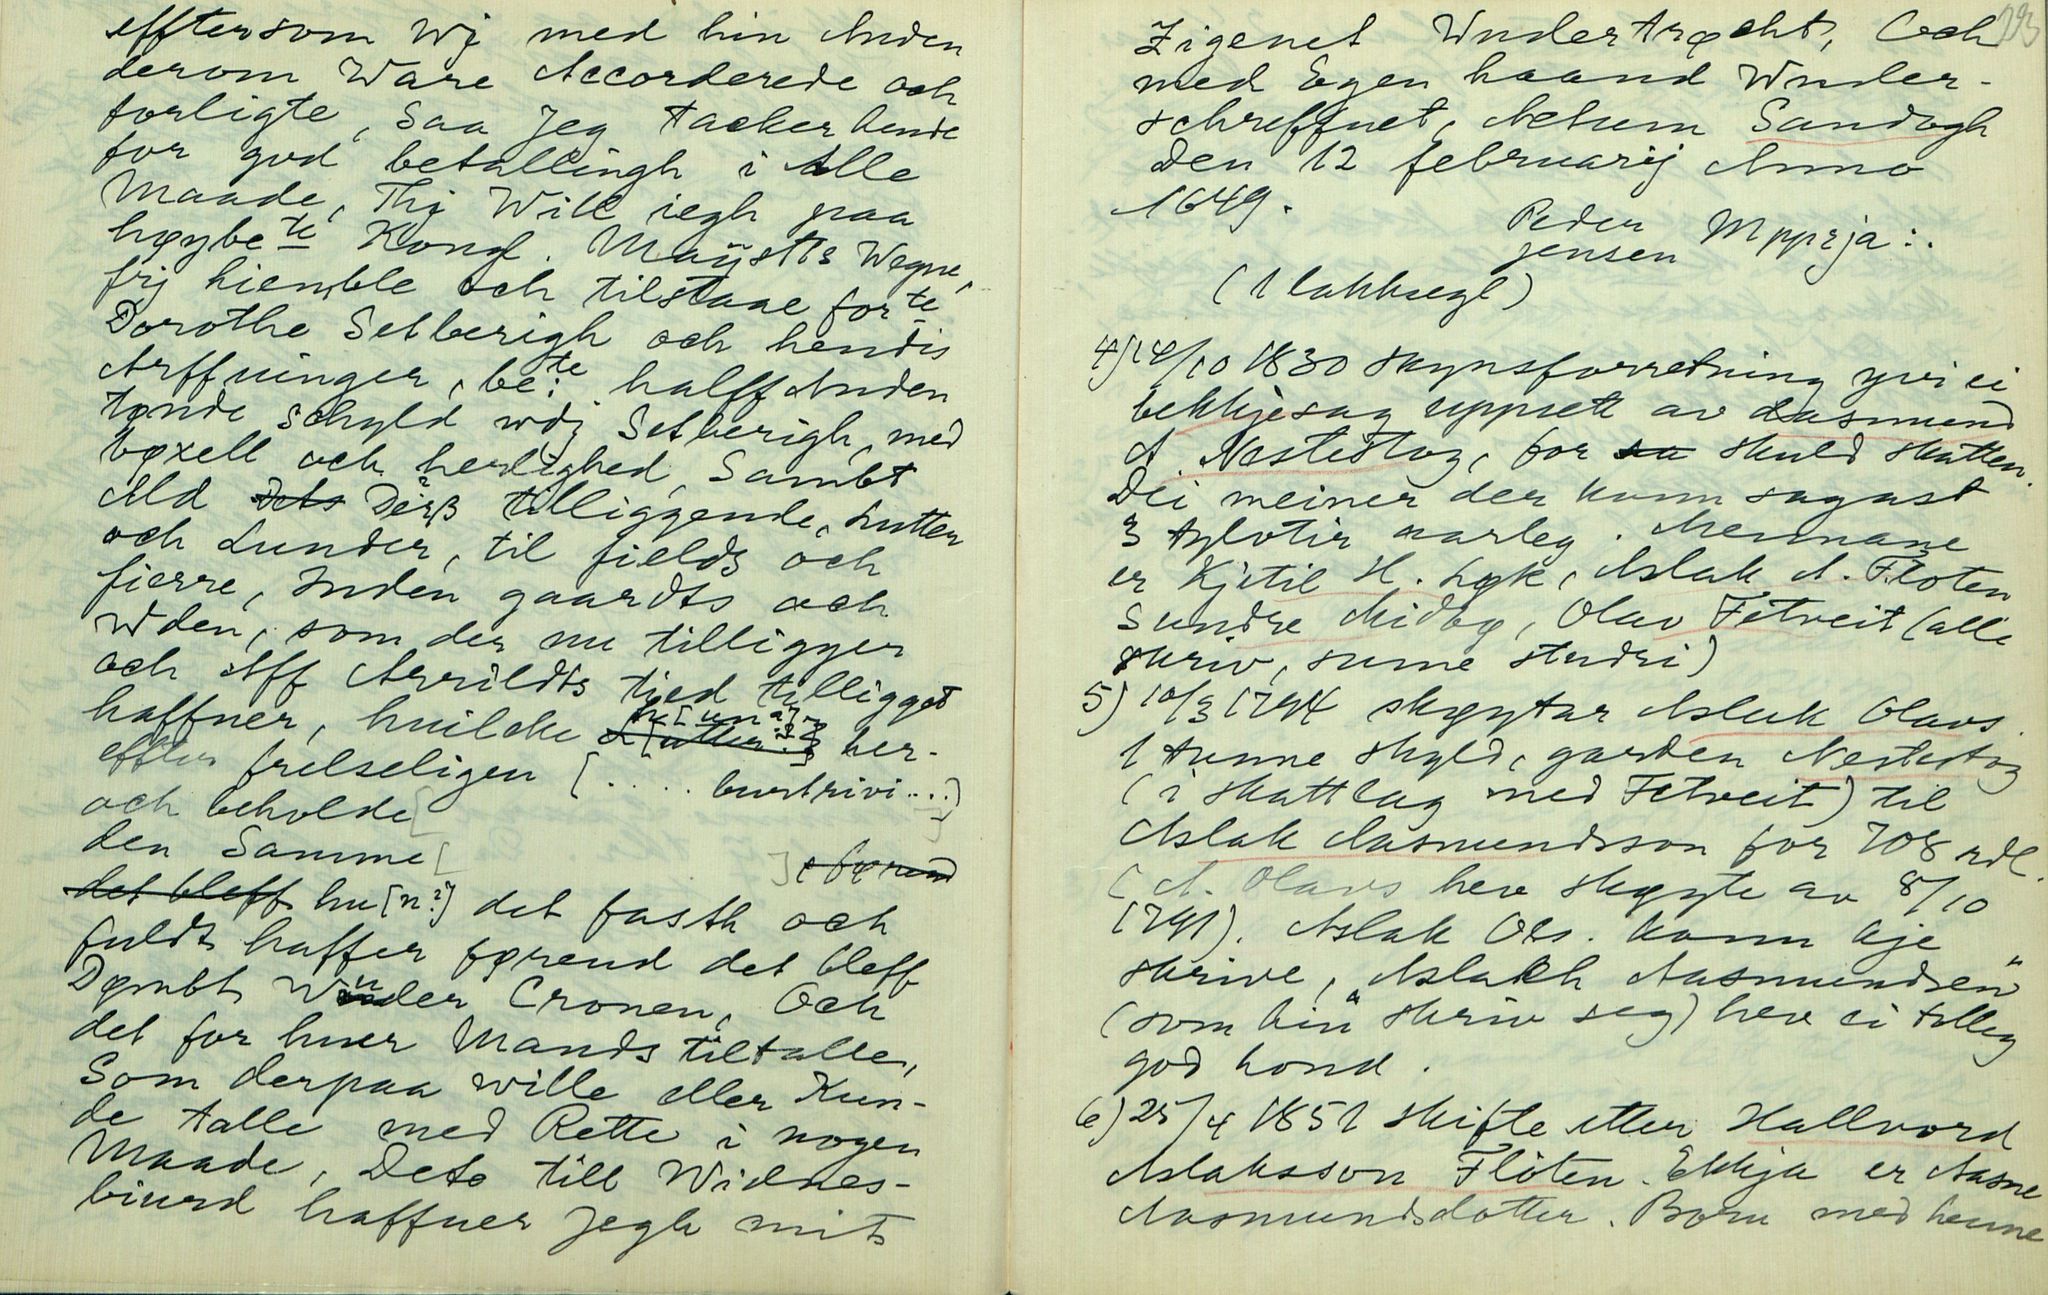 efftersom Wj med hin Anden
derom Ware Accorderede och
forligte, Saa Jeg tacker hende
for god betallingh i Alle
Maade, Thj Will iegh paa
høybe te Kong. Maÿstts Wegne,
frj hiemble och tilstaae for te
Dorothe Setberigh och hendis
Arffninger, be: te halff Anden
tønde schyld wdj Setberigh, med
bøxell och herlighed, Sambt
Ald Dets Derß tilliggende, Lutter
och Lunder, til fields och
fierre, Inden gaardts och
Wden, som der nu tilligger
och Aff Arrildts tied tilligget
haffner, huilcke h[un?] her-
effter frelseligen [..... burtrivi...]
och beholde[ ]
den Samme[ ] føренd
det bleff hu[n?] det fasth och
fuldt haffer førend det bleff
Dømbt Wnder Cronen, Och
det for huer Mands tiltalle,
Som derpaa wille eller Kun-
de talle med Rette i nogen
Maade, Dets till Widnes-
biurd haffuer Jegh mit
193
Zigenet WnderTrøcht, Och
med Egen haand Wnder-
schreffuet, Actum Sandøgh
Den 12 februarij Anno
1649.
Peder
Jensen Mppria:.
(1 lakksegl)
4) 14/10 1830 skynsforretning yvi ei
bekkjesag uppsett av Aasmund
A. Nestestog, for sa skuld skatten.
Dei meiner der kann sagast
3 tylvtir aarleg. Mennane
er Kjetil H. Løk, Aslak A. Floten
Sundre Midbø, Olav Fetveit (alle
skriv, sume studri)
5) 10/3 1794 skøytar Aslak Olavs.
1 tunne skyld, garden Nestestog
(i skattlag med Fetveit) til
Aslak Aasmundsson for 708 rdl.
(A. Olavs hev skøyte av 8/10
1791). Aslak Ols. kann kje
skrive, "Aslach Aasmundsen"
(som hin skriv seg) hev ei tolleg
god hond.
6) 25/4 1851 skifte etter Hallvord
Aslaksson Flóten. Ekkja er Aasne
Aasmundsdotter. Born med henne